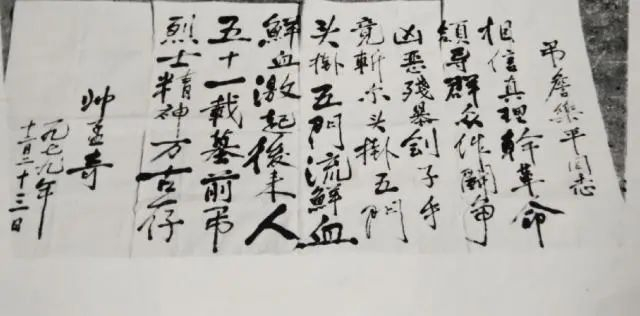 吊詹樂平同志
相信真理幹革命
領导群众作鬪争
凶恶殘暴刽子手
竟斬尔头掛五門
头掛五門流鮮血
鮮血激起後来人
五十一載墓前吊
烈士精神万古存
帅孟奇
一九七九年
月二十三日